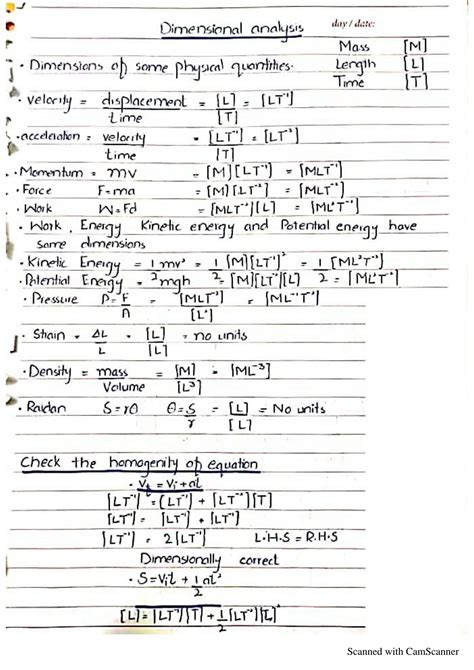 Dimensional analysis day / date:
Mass [M]
· Dimensions of some physical quantities. Length [L]
Time [T]
· velocity = displacement = [L] = [LT⁻¹]
time [T]
· acceleration = velocity = [LT⁻¹] = [LT⁻²]
time [T]
· Momentum = mv = [M][LT⁻¹] = [MLT⁻¹]
· Force F=ma = [M][LT⁻²] = [MLT⁻²]
· Work W=Fd = [MLT⁻²][L] = [ML²T⁻²]
· Work, Energy Kinetic energy and Potential energy have
same dimensions
· Kinetic Energy = 1 mv² = 1 [M][LT⁻¹]² = 1 [ML²T⁻²]
2 2 2
· Potential Energy = mgh = [M][LT⁻²][L] = [ML²T⁻²]
· Pressure P=F = [MLT⁻²] = [ML⁻¹T⁻²]
A [L²]
· Strain = ΔL = [L] = no units
L [L]
· Density = mass = [M] = [ML⁻³]
Volume [L³]
· Raidan S=rθ θ=S = [L] = No units
r [L]
Check the homogenity of equation
· Vf = Vi + at
[LT⁻¹] = [LT⁻¹] + [LT⁻²][T]
[LT⁻¹] = [LT⁻¹] + [LT⁻¹]
[LT⁻¹] = 2[LT⁻¹] L·H·S = R·H·S
Dimensionally correct
· S=Vit + 1 at²
2
[L] = [LT⁻¹][T] + 1 [LT⁻²][T]²
2
Scanned with CamScanner